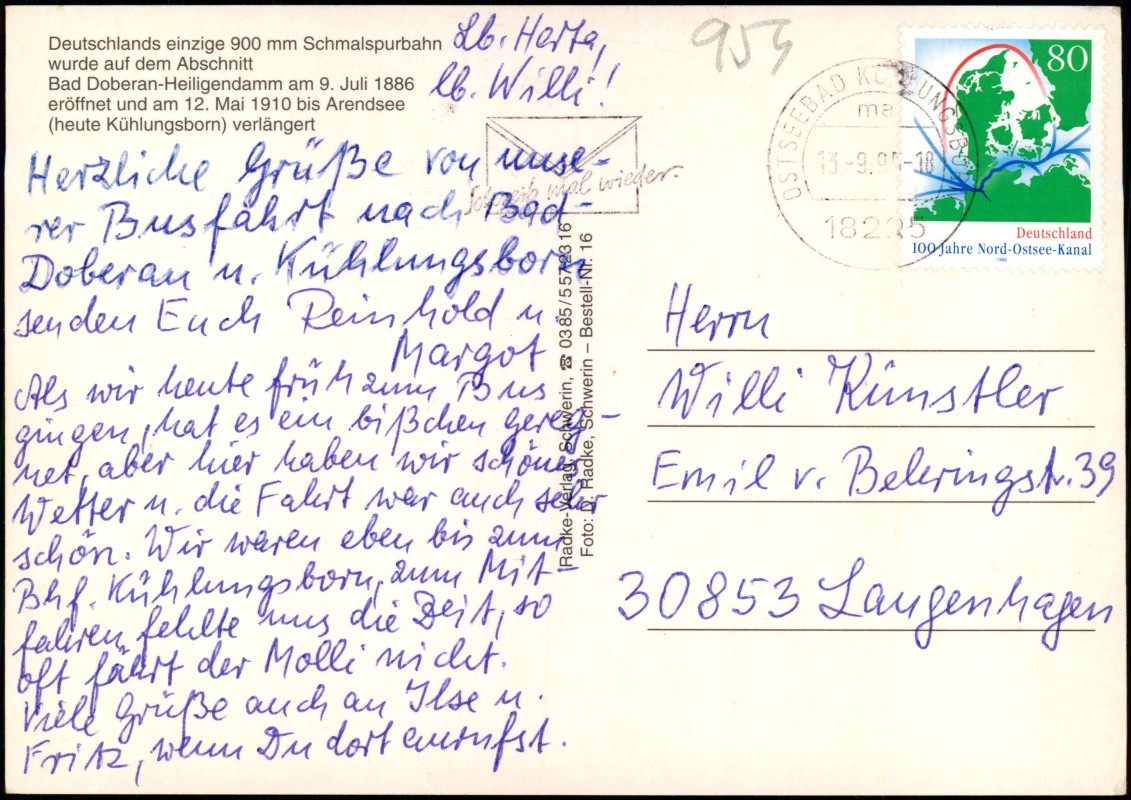 Deutschlands einzige 900 mm Schmalspurbahn
wurde auf dem Abschnitt
Bad Doberan-Heiligendamm am 9. Juli 1886
eröffnet und am 12. Mai 1910 bis Arendsee
(heute Kühlungsborn) verlängert
Lb. Herta,
lb. Willi!
Herzliche Grüße von unse-
rer Busfahrt nach Bad-
Doberan u. Kühlungsborn
senden Euch Reinhold u.
Margot
Als wir heute früh zum Bus
gingen, hat es ein bißchen gereg-
net, aber hier haben wir schönes
Wetter u. die Fahrt war auch sehr
schön. Wir waren eben bis zum
Bhf. Kühlungsborn, zum Mit-
fahren fehlte uns die Zeit, so
oft fährt der Molli nicht.
Viele Grüße auch an Ilse u.
Fritz, wenn Du dort anrufst.
Schreib mal wieder.
Radke-Verlag, Schwerin, ☎ 0385/5572316
Foto: D. Radke, Schwerin – Bestell-Nr. 16
954
OSTSEEBAD KÜHLUNGSBORN
ma
13.-9.95-18
18225
80
Deutschland
100 Jahre Nord-Ostsee-Kanal
1995
Herrn
Willi Künstler
Emil v. Behringstr. 39
30853 Langenhagen